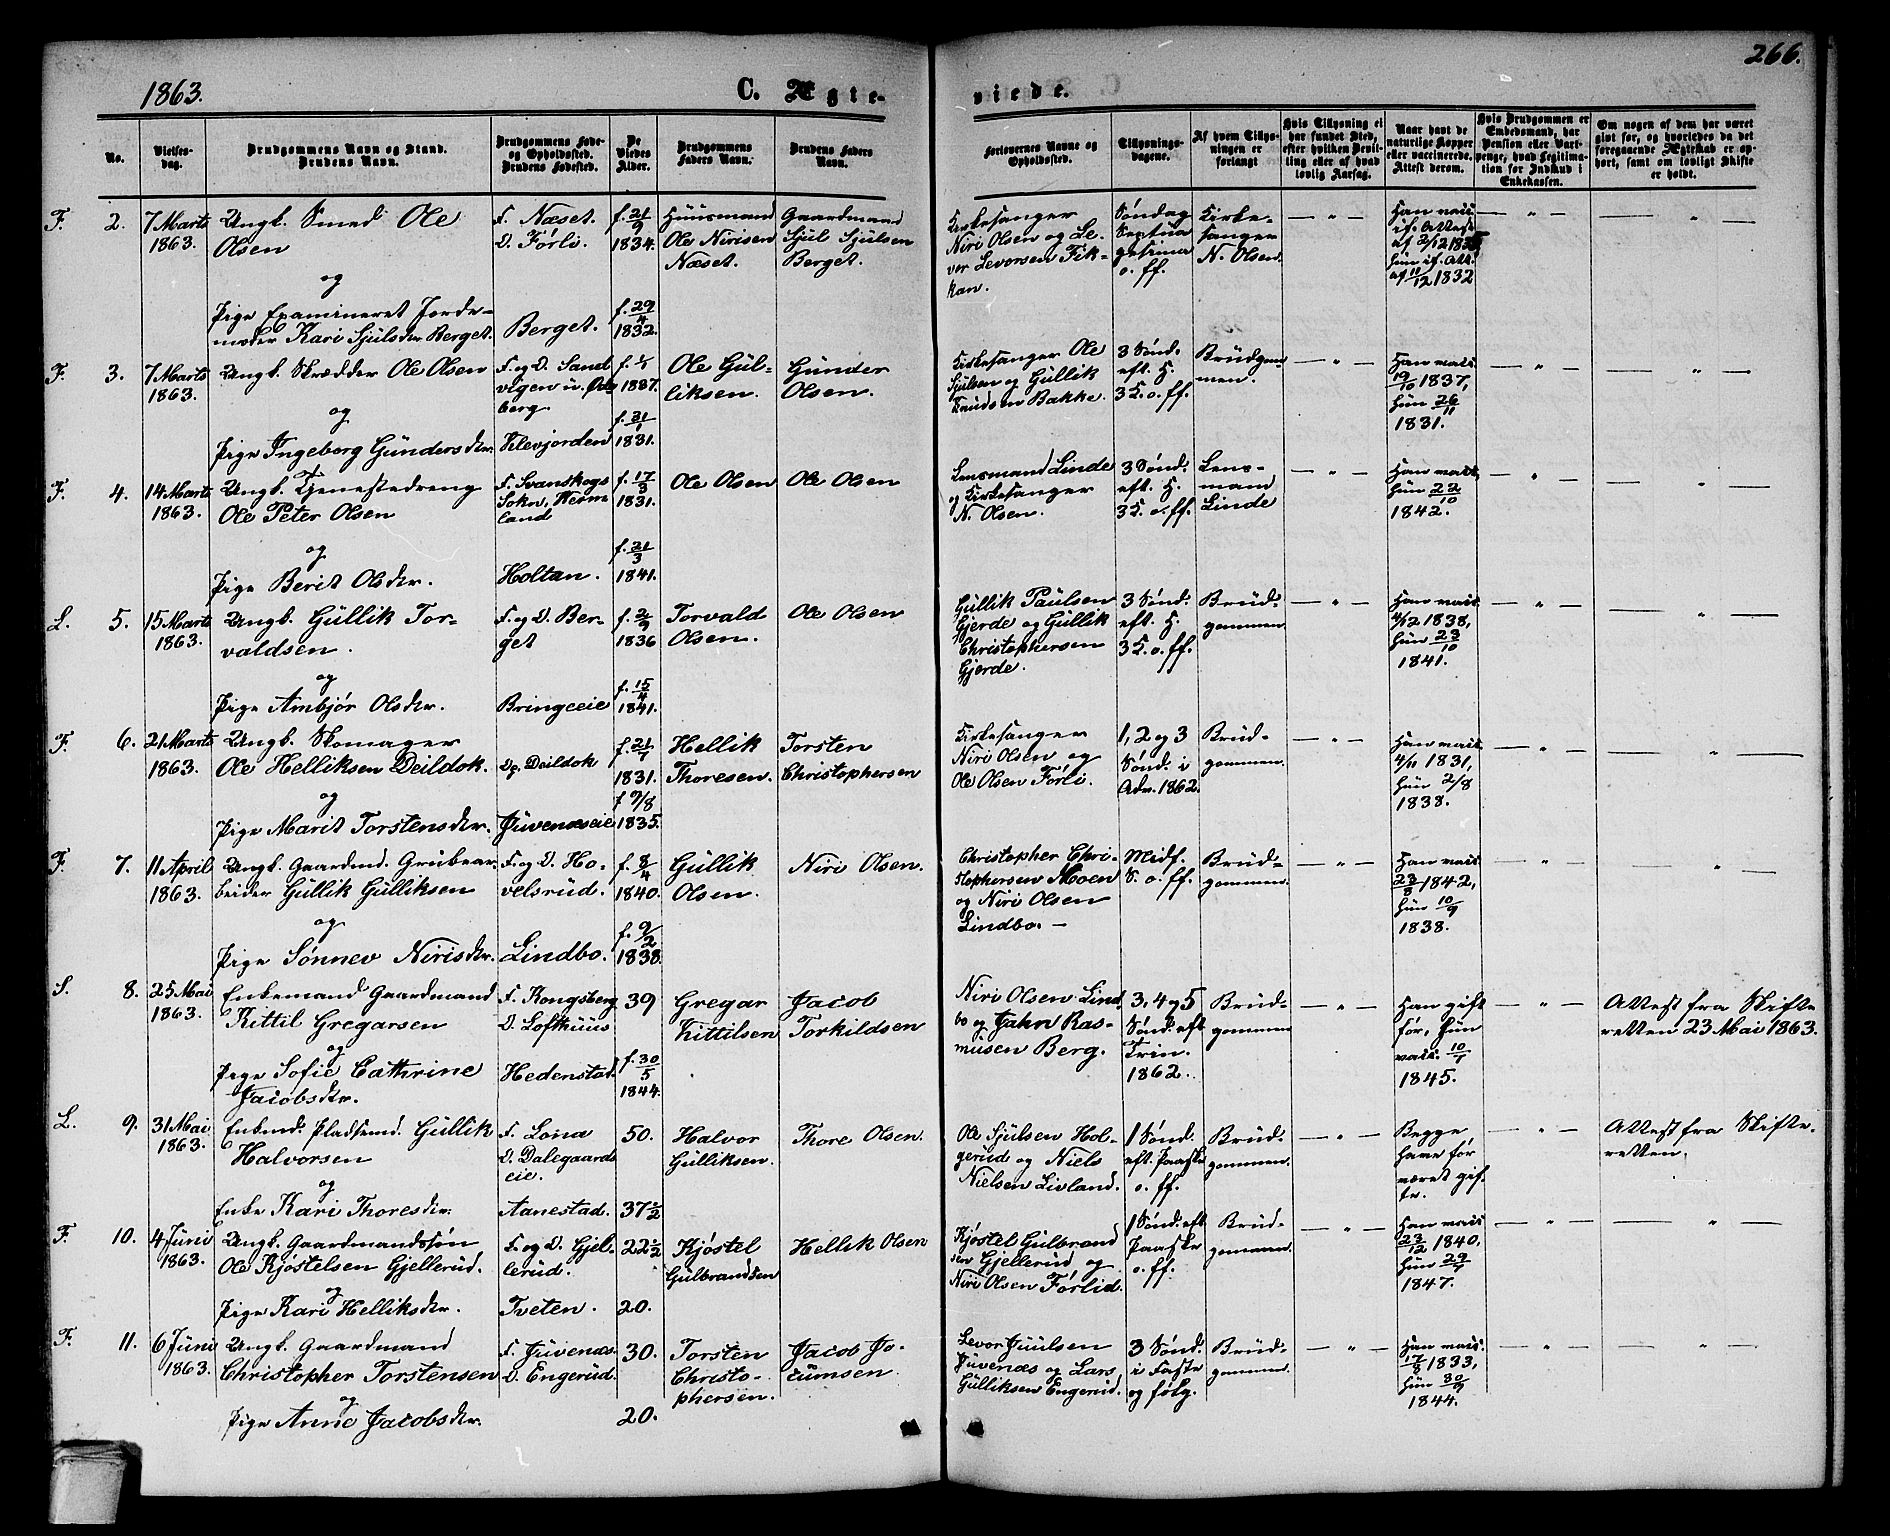 1863.
C. Ægte-
viede.
266.
No.
Vielses-
dag.
Brudgommens Navn og Stand.
Brudens Navn.
Brudgommens Føde-
og Opholdssted.
Brudens Fødested.
De
Viedes
Alder.
Brudgommens
Faders Navn.
Brudens Faders
Navn.
Forlovernes Navne og
Opholdssted.
Tillysnings-
dagene.
Af hvem Tillys-
ningen er
forlangt
Hvis Tillysning ei
har fundet Sted,
efter hvilken Bevil-
ling eller af hvad
lovlig Aarsag.
Naar havt de
naturlige Kopper
eller vaccinerede.
Attest derom.
Hvis Brudgommen er
Embedsmand, har
Pension eller Vart-
penge, hvad Legitima-
tion for Indskud i
Enkekassen.
Om nogen af dem har været
gift før, og hvorledes da det
foregaaende Ægteskab er op-
hørt, samt om lovligt Skifte
er holdt.
F. 2. 7 Marts
1863.
Ungk. Smed Ole
Olsen
og
Pige Examineret Jorde-
moder Kari Sjulsdtr Berget.
F. Næset.
D. Førli.
Berget.
f. 21/9
1834.
f. 29/4
1832.
Huusmand
Ole Nirisen
Næset.
Gaardmand
Sjul Sjulsen
Berget.
Kirkesanger
Niri Olsen og Le-
vor Levorsen Fik-
kan.
Søndag
Septua
gesima
o. ff.
Kirke-
sanger
N. Olsen.
Han vacc.
if. Attest
af 2/12 1835
hun if. Att.
af 11/12 1832
F. 3. 7 Marts
1863.
Ungk. Skrædder Ole Olsen
og
Pige Ingeborg Gundersdtr.
F. og D. Sand
vigen u.
berg.
Klevjorden
1837.
f. 31/1
1831.
Ole Gul-
liksen.
Gunder
Olsen.
Kirkesanger Ole
Sjulsen og Gullik
Knudsen Bakke.
3 Sønd.
eft. H.
3 K. o. ff.
Brudgom
men.
Han vacc.
19/10 1837,
hun 26/11
1831.
F. 4. 14 Marts
1863.
Ungk. Tjenestedreng
Ole Peter Olsen
og
Pige Berit Olsdtr.
F. Svanskogs
Sokn, Werm
land
Holtan.
f. 17/3
1831.
f. 21/3
1841.
Ole Olsen
Ole Olsen
Lensmand Linde
og Kirkesanger
N. Olsen.
3 Sønd.
eft. H.
3 K. o. ff.
Lens-
mand
Linde
Han vacc.
hun 22/10
1842.
L. 5. 15 Marts
1863.
Ungk. Gullik Tor-
valdsen.
og
Pige Ambjør Olsdtr.
F. og D. Ber-
get
Bringeeie
f. 2/9
1836
f. 15/4
1841.
Torvald
Olsen.
Ole Olsen
Gullik Paulsen
Gjerde og Gullik
Christophersen
Gjerde.
3 Sønd.
eft. H.
3 K. o. ff.
Brud-
gommen
Han vacc.
4/12 1838,
hun 23/10
1841.
F. 6. 21 Marts
1863.
Ungk. Skomager
Ole Helliksen Deildok.
og
Pige Marit Torstensdtr.
Deildok
Juvenæseie
f. 21/7
1831.
f 9/8
1835.
Hellik
Thoresen.
Torsten
Christophersen
Kirkesanger
Niri Olsen og
Ole Olsen Førli.
1, 2 og 3
Sønd. i
Adv. 1862.
Brud-
gommen.
Han vacc.
4/11 1831,
hun 2/8
1838.
F. 7. 11 April
1863.
Ungk. Gaardmd. Grubear-
beider Gullik Gulliksen
og
Pige Sønnev Nirisdtr.
F. og D. Ho-
velsrud.
Lindbo.
f. 8/4
1840.
f. 9/2
1838.
Gullik
Olsen.
Niri Olsen.
Christopher Chri-
stophersen Moen
og Niri Olsen
Lindbo. —
Midf.
S. o. ff.
Brud-
gommen.
Han vacc.
23/8 1842,
hun 10/9
1838.
S. 8. 25 Mai
1863.
Enkemand Gaardmand
Kittil Gregarsen
og
Pige Sofie Cathrine
Jacobsdtr.
F. Kongsberg
D. Lofthuus
Hedenstad.
39
f. 30/5
1844.
Gregar
Kittilsen
Jacob
Torkildsen
Niri Olsen Lind
bo og Jahn Ras-
musen Berg.
3, 4 og 5
Sønd. eft
Trin.
1862.
Brud-
gommen
Han gift
før, hun
vacc. 10/7
1845.
Attest fra Skifte
retten 23 Mai 1863.
L. 9. 31 Mai
1863.
Enkmd. Pladsemd. Gullik
Halvorsen
og
Enke Kari Thoresdtr.
F. Lona
D. Dalegaards
eie.
Aanestad.
50.
37 1/2
Halvor
Gulliksen.
Thore Olsen.
Ole Sjulsen Hol-
gerud og Niels
Nielsen Livland.
1 Sønd.
eft. Paaske
o. ff.
Brud-
gommen.
Begge
have før
været gif-
te.
Attest fra Skifte-
retten.
F. 10. 4 Juni
1863.
Ungk. Gaardmandssøn
Ole Kjøstelsen Gjellerud.
og
Pige Kari Helliksdtr.
F. og D. Gjel-
lerud.
Tveten.
22 1/2
20.
Kjøstel
Gulbrandsen
Hellik Olsen
Kjøstel Gulbrand
sen Gjellerud og
Niri Olsen Førlid.
1 Sønd. eft
Paaske
o. ff.
Brud-
gommen.
Han vacc.
23/12 1840,
hun 29/7
1847.
F. 11. 6 Juni
1863.
Ungk. Gaardmand
Christopher Torstensen
og
Pige Anne Jacobsdtr.
F. Juvenæs
D. Engerud.
30.
20.
Torsten
Christo-
phersen.
Jacob Jo-
cumsen.
Levor Juulsen
Juvenæs og Lars
Gulliksen Engerud.
3 Sønd.
i Faste
og følg.
Brud-
gommen.
Han vacc.
17/8 1833,
hun 30/9
1844.